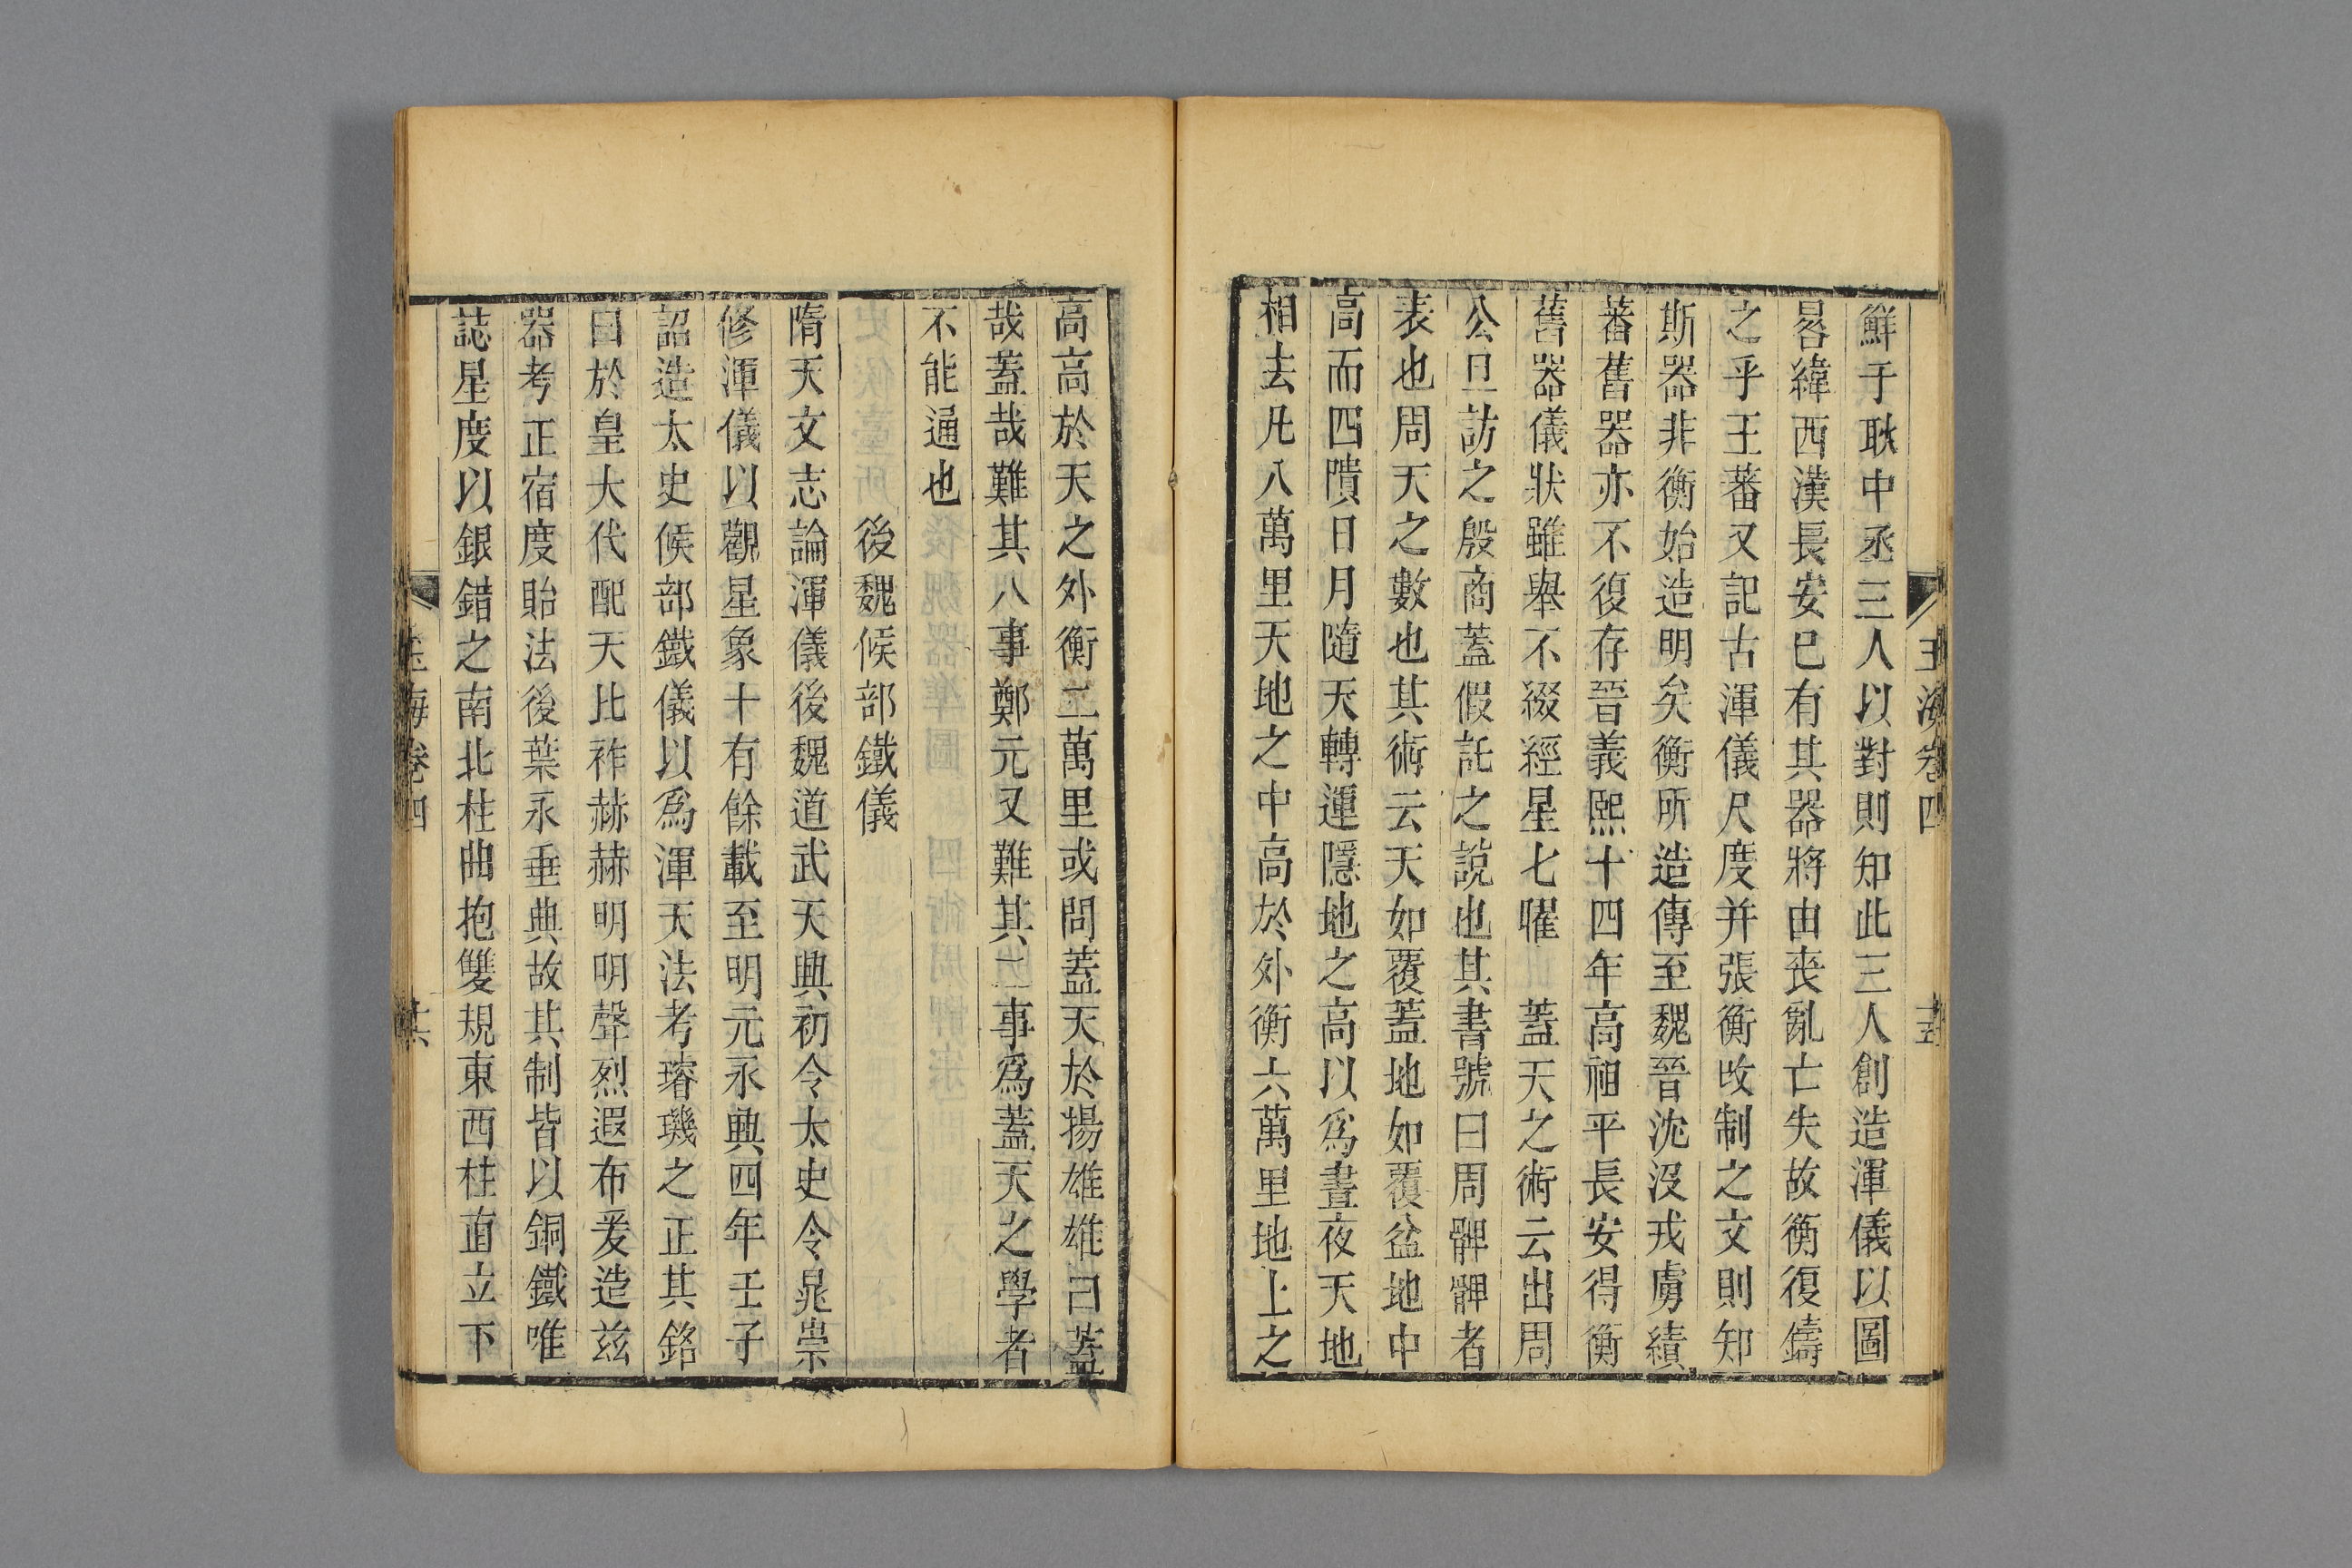 玉海卷四 十五
鮮于耿中丞三人以對則知此三人創造渾儀以圖
晷緯西漢長安巳有其器將由喪亂亡失故衡復鑄
之乎王蕃又記古渾儀尺度并張衡改制之文則知
斯器非衡始造明矣衡所造傳至魏晉沈沒戎虜績
蕃舊器亦不復存晉義熙十四年高祖平長安得衡
舊器儀狀雖舉不綴經星七曜 蓋天之術云出周
公旦訪之殷商蓋假託之說也其書號曰周髀髀者
表也周天之數也其術云天如覆蓋地如覆盆地中
高而四隤日月隨天轉運隱地之高以爲晝夜天地
相去凡八萬里天地之中高於外衡六萬里地上之
高高於天之外衡二萬里或問蓋天於揚雄雄曰蓋
哉蓋哉難其八事鄭元又難其二事爲蓋天之學者
不能通也
後魏候部鐵儀
隋天文志論渾儀後魏道武天興初令太史令晁崇
修渾儀以觀星象十有餘載至明元永興四年壬子
詔造太史候部鐵儀以爲渾天法考璿璣之正其銘
曰於皇大代配天比祚赫赫明明聲烈遐布爰造玆
器考正宿度貽法後葉永垂典故其制皆以銅鐵唯
誌星度以銀錯之南北柱曲抱雙規東西柱直立下
玉海卷四 十六